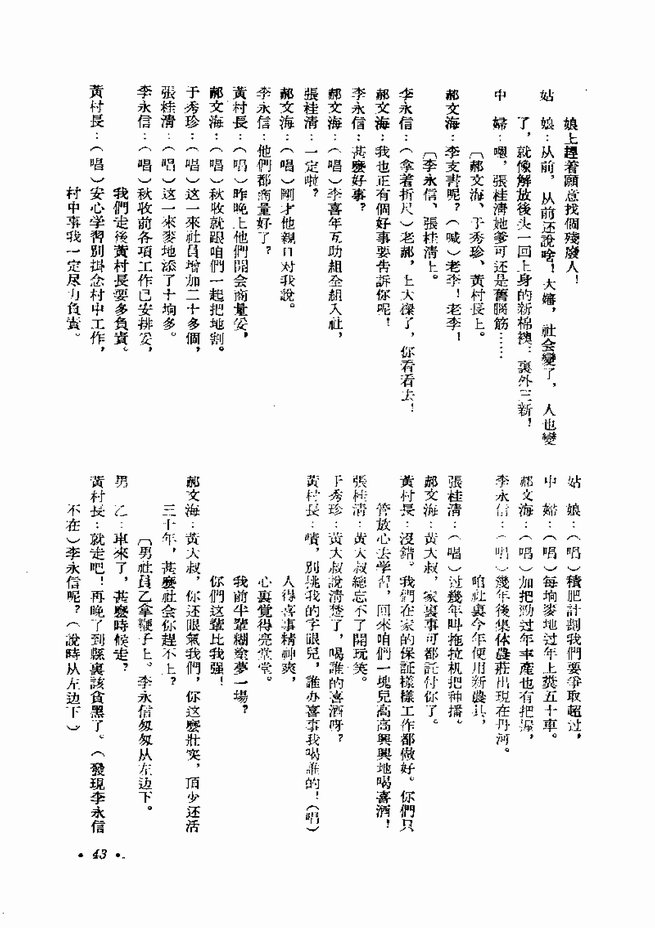 娘上趕着願意找個殘廢人！
姑　娘：从前，从前还說啥！大嬸，社会變了，人也變
了，就像解放後头一回上身的新棉襖…裏外三新！
中　婦：嗯，張桂清她爹可还是舊腦筋……
〔郝文海、于秀珍、黃村長上。
郝文海：李支書呢？（喊）老李！老李！
〔李永信、張桂清上。
李永信：（拿着折尺）老郝，上大樑了，你看看去！
郝文海：我也正有個好事要告訴你呢！
李永信：甚麽好事？
郝文海：（唱）李喜年互助組全組入社，
張桂清：一定啦？
郝文海：（唱）剛才他親口对我說。
李永信：他們都商量好了？
黃村長：（唱）昨晚上他們開会商量妥，
郝文海：（唱）秋收就跟咱們一起把地割。
于秀珍：（唱）这一來社員增加二十多個，
張桂清：（唱）这一來麥地添了十垧多。
李永信：（唱）秋收前各項工作已安排妥，
我們走後黃村長要多負責。
黃村長：（唱）安心学習別掛念村中工作，
村中事我一定尽力負責。
姑　娘：（唱）積肥計劃我們要爭取超过，
中　婦：（唱）每垧麥地过年上糞五十車。
郝文海：（唱）加把勁过年丰產也有把握，
李永信：（唱）幾年後集体農莊出現在丹河。
咱社裏今年便用新農具，
張桂清：（唱）过幾年叫拖拉机把种播。
郝文海：黃大叔，家裏事可都託付你了。
黃村長：沒錯。我們在家的保証樣樣工作都做好。你們只
管放心去学習，回來咱們一塊兒高高興興地喝喜酒！
張桂清：黃大叔總忘不了開玩笑。
于秀珍：黃大叔說清楚了，喝誰的喜酒呀？
黃村長：嘖，別挑我的字眼兒，誰办喜事我喝誰的！（唱）
人得喜事精神爽，
心裏覺得亮堂堂。
我前半輩糊塗夢一場？
你們这輩比我强！
郝文海：黃大叔，你还眼氣我們，你这麽壯实，頂少还活
三十年，甚麽社会你趕不上？
〔男社員乙拿鞭子上。李永信匆匆从左边下。
男　乙：車來了，甚麽時候走？
黃村長：就走吧！再晚了到縣裏該貪黑了。（發現李永信
不在）李永信呢？（說時从左边下）
• 43 •